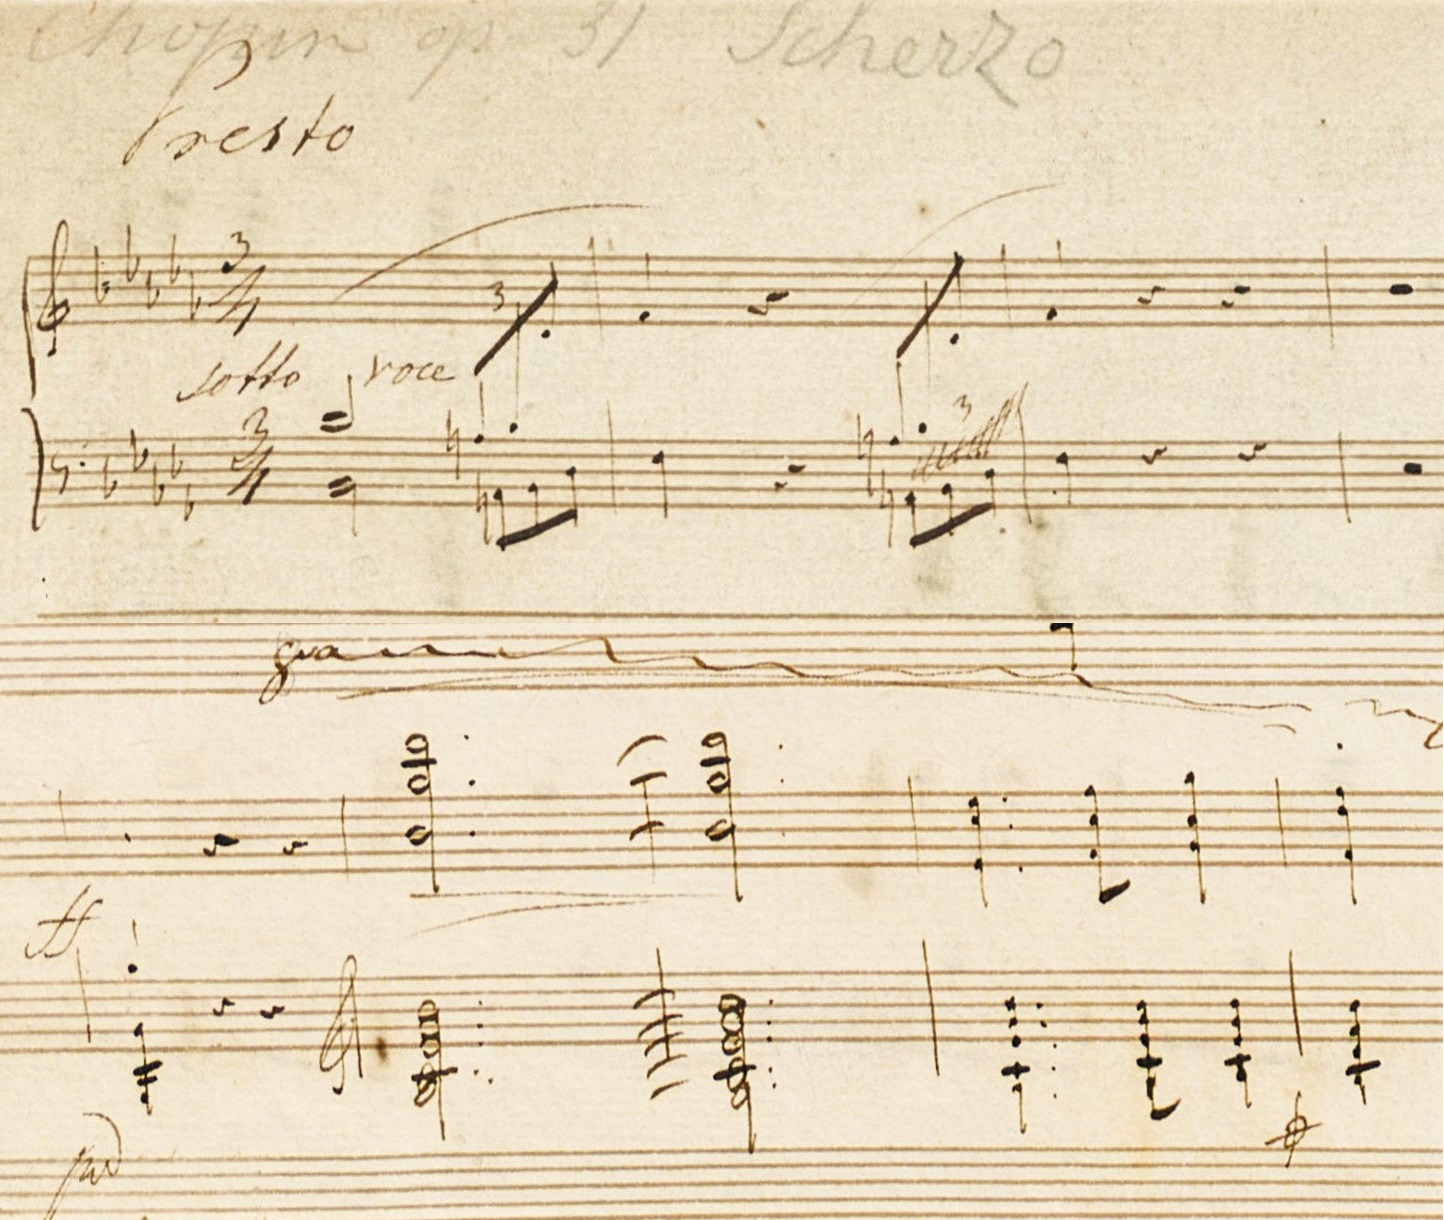 Chopin op 31 Scherzo
Presto
3/4
3
sotto voce
3/4
3
8va
ff
ped